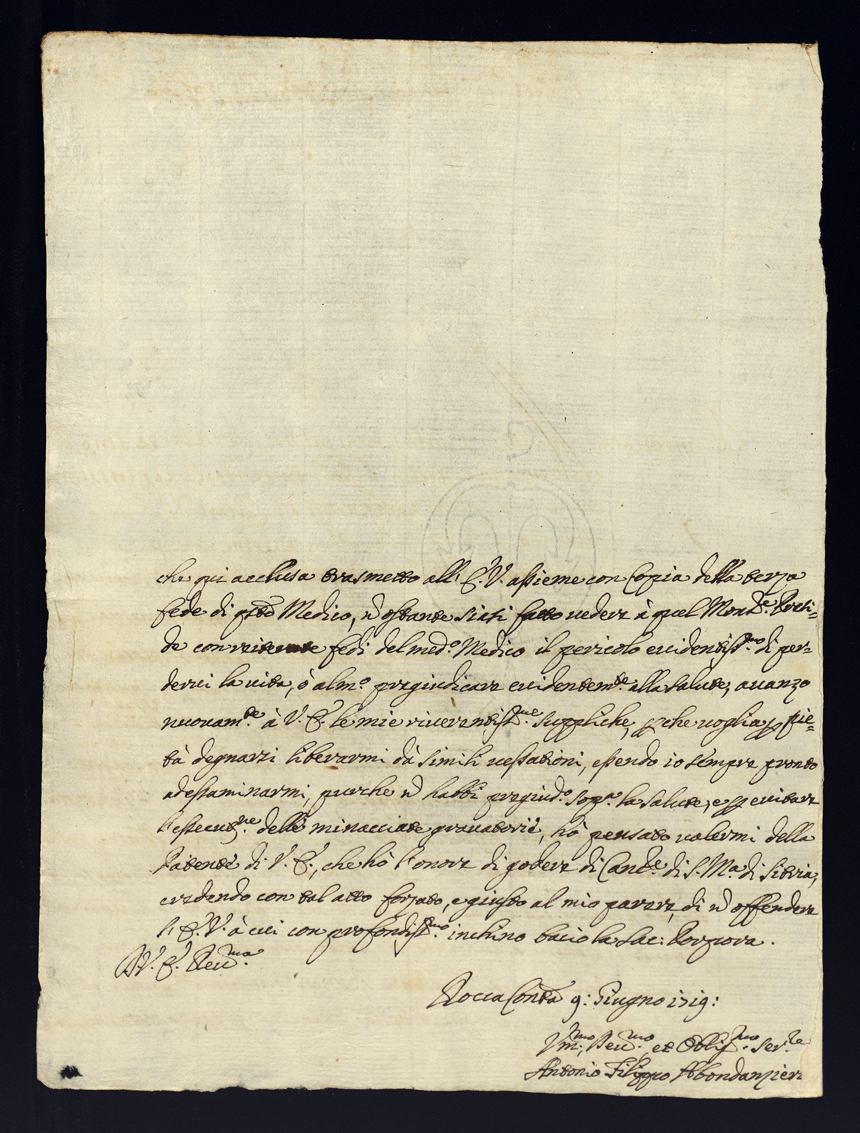 che qui acclusa trasmetto all' E. V. assieme con Copia della terza
fede di q.to Medico, n ostante siati fatto vedere à quel Mons.re Presi=
de con fedi del med.o Medico il pericolo evidentiss.mo di per=
derci la vita, ò alm.o pregiudicare evidentem.te alla salute, avanzo
nuovam.te à V. E. le mie riverentiss.me suppliche, p che voglia p pie=
tà degnarsi liberarmi dà simili vessationi, essendo io sempre pronto
ad essaminarmi, purche n habbi pregiud.o sop.a la salute, e p evitare
l'essecut.ne delle minacciate privatorie, hò pensato valermi della
Patente di V. E., che hò l'onore di godere di Cand.e di S. M.a di Sitria,
credendo con tal atto forzato, e giusto al mio parere di n offendere
l' E. V. à cui con profondiss.mo inchino bacio la Sac: Porpora.
D V. E. Reu.ma
Rocca Cont.a 9: Giugno 1719:
Vm:mo, Deu.mo, et Oblig.mo Ser.re
Antonio Filippo Abondanzieri